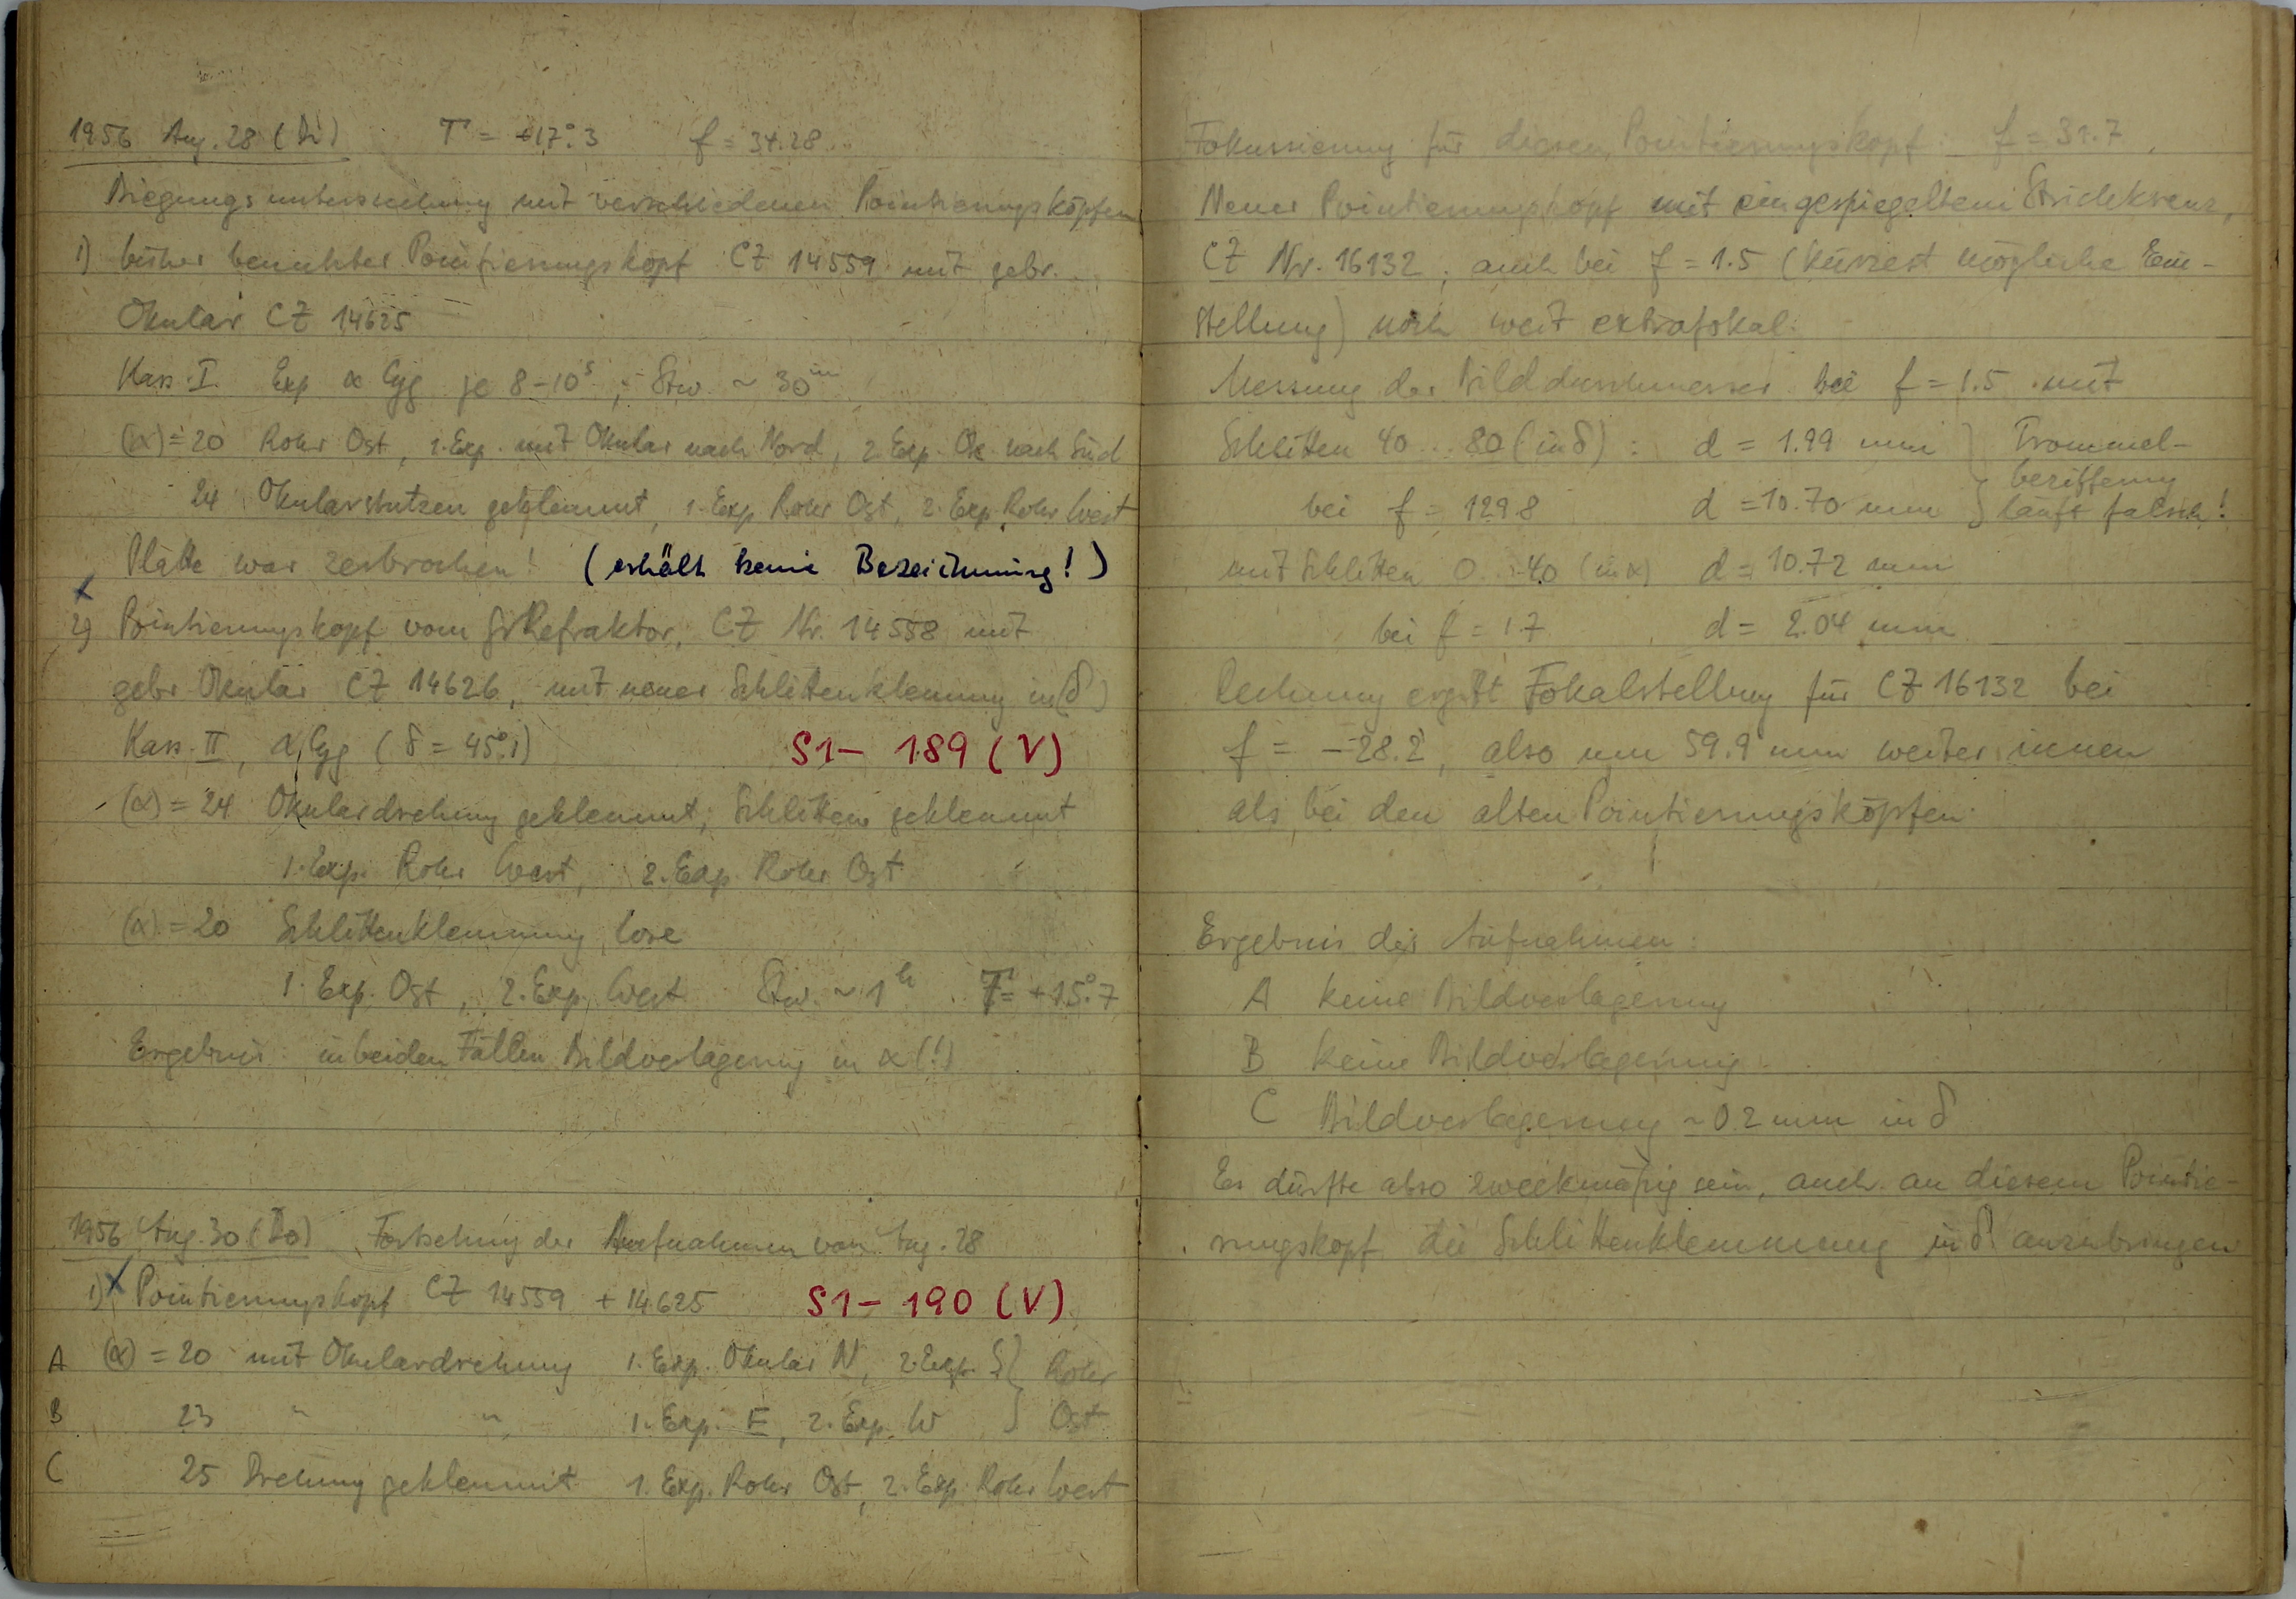 1956 Aug. 28 (Di) T = +17°.3 f = 34.28
Biegungsuntersuchung mit verschiedenen Pointierungsköpfen
1) bisher benutzter Pointierungskopf CZ 14559 mit gebr.
Okular CZ 14625
Kass. I. Exp α Cyg je 8-10s ; Stw. ~ 30m
(α) = 20 Rohr Ost, 1. Exp. mit Okular nach Nord, 2 Exp. Ok. nach Süd
24 Okularstutzen geklemmt, 1. Exp. Rohr Ost, 2. Exp. Rohr West
Platte war zerbrochen! (erhält keine Bezeichnung!)
2) Pointierungskopf vom Gr Refraktor, CZ Nr. 14558 mit
gebr Okular CZ 14626, mit neuer Schlittenklemmung in (δ)
Kass. II, α Cyg (δ = 45°.1) S1- 189 (V)
(α) = 24 Okulardrehung geklemmt; Schlitten geklemmt
1. Exp. Rohr West, 2. Exp Rohr Ost
(α) = 20 Schlittenklemmung lose
1. Exp. Ost, 2. Exp. West Stw. ~ 1h. T = +15°.7
Ergebnis: in beiden Fällen Bildverlagerung in α (!)
1956 Aug. 30 (Do) Fortsetzung der Aufnahmen von Aug. 28
1) Pointierungskopf CZ 14559 + 14625 S1- 190 (V)
A (α) = 20 mit Okulardrehung 1. Exp. Okular N, 2. Exp. S } Rohr
B 23 " " 1. Exp. E, 2. Exp. W } Ost
C 25 Drehung geklemmt 1. Exp. Rohr Ost, 2. Exp. Rohr West
Fokussierung für diesen Pointierungskopf f = 31.7
Neuer Pointierungskopf mit eingespiegeltem Strichkreuz,
CZ Nr. 16132, auch bei f = 1.5 (kürzest mögliche Ein-
stellung) noch weit extrafokal.
Messung der Bilddurchmesser bei f = 1.5 mit
Schlitten 40 .. 80 (in δ) : d = 1.99 mm } Trommel-
bezifferung
bei f = 129.8 d = 10.70 mm } läuft falsch!
mit Schlitten 0 .. 40 (in α) d = 10.72 mm
bei f = 1.7 d = 2.04 mm
Rechnung ergibt Fokalstellung für CZ 16132 bei
f = -28.2, also um 59.9 mm weiter innen
als bei den alten Pointierungsköpfen.
Ergebnis der Aufnahmen:
A keine Bildverlagerung
B keine Bildverlagerung
C Bildverlagerung ~ 0.2 mm in δ
Es dürfte also zweckmäßig sein, auch an diesem Pointie-
rungskopf die Schlittenklemmung in δ anzubringen